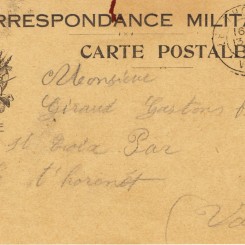 RRESPONDANCE MILIT
CARTE POSTALE
Monsieur
Giraud Gastons
St Croix Par
t'horenet
(Va